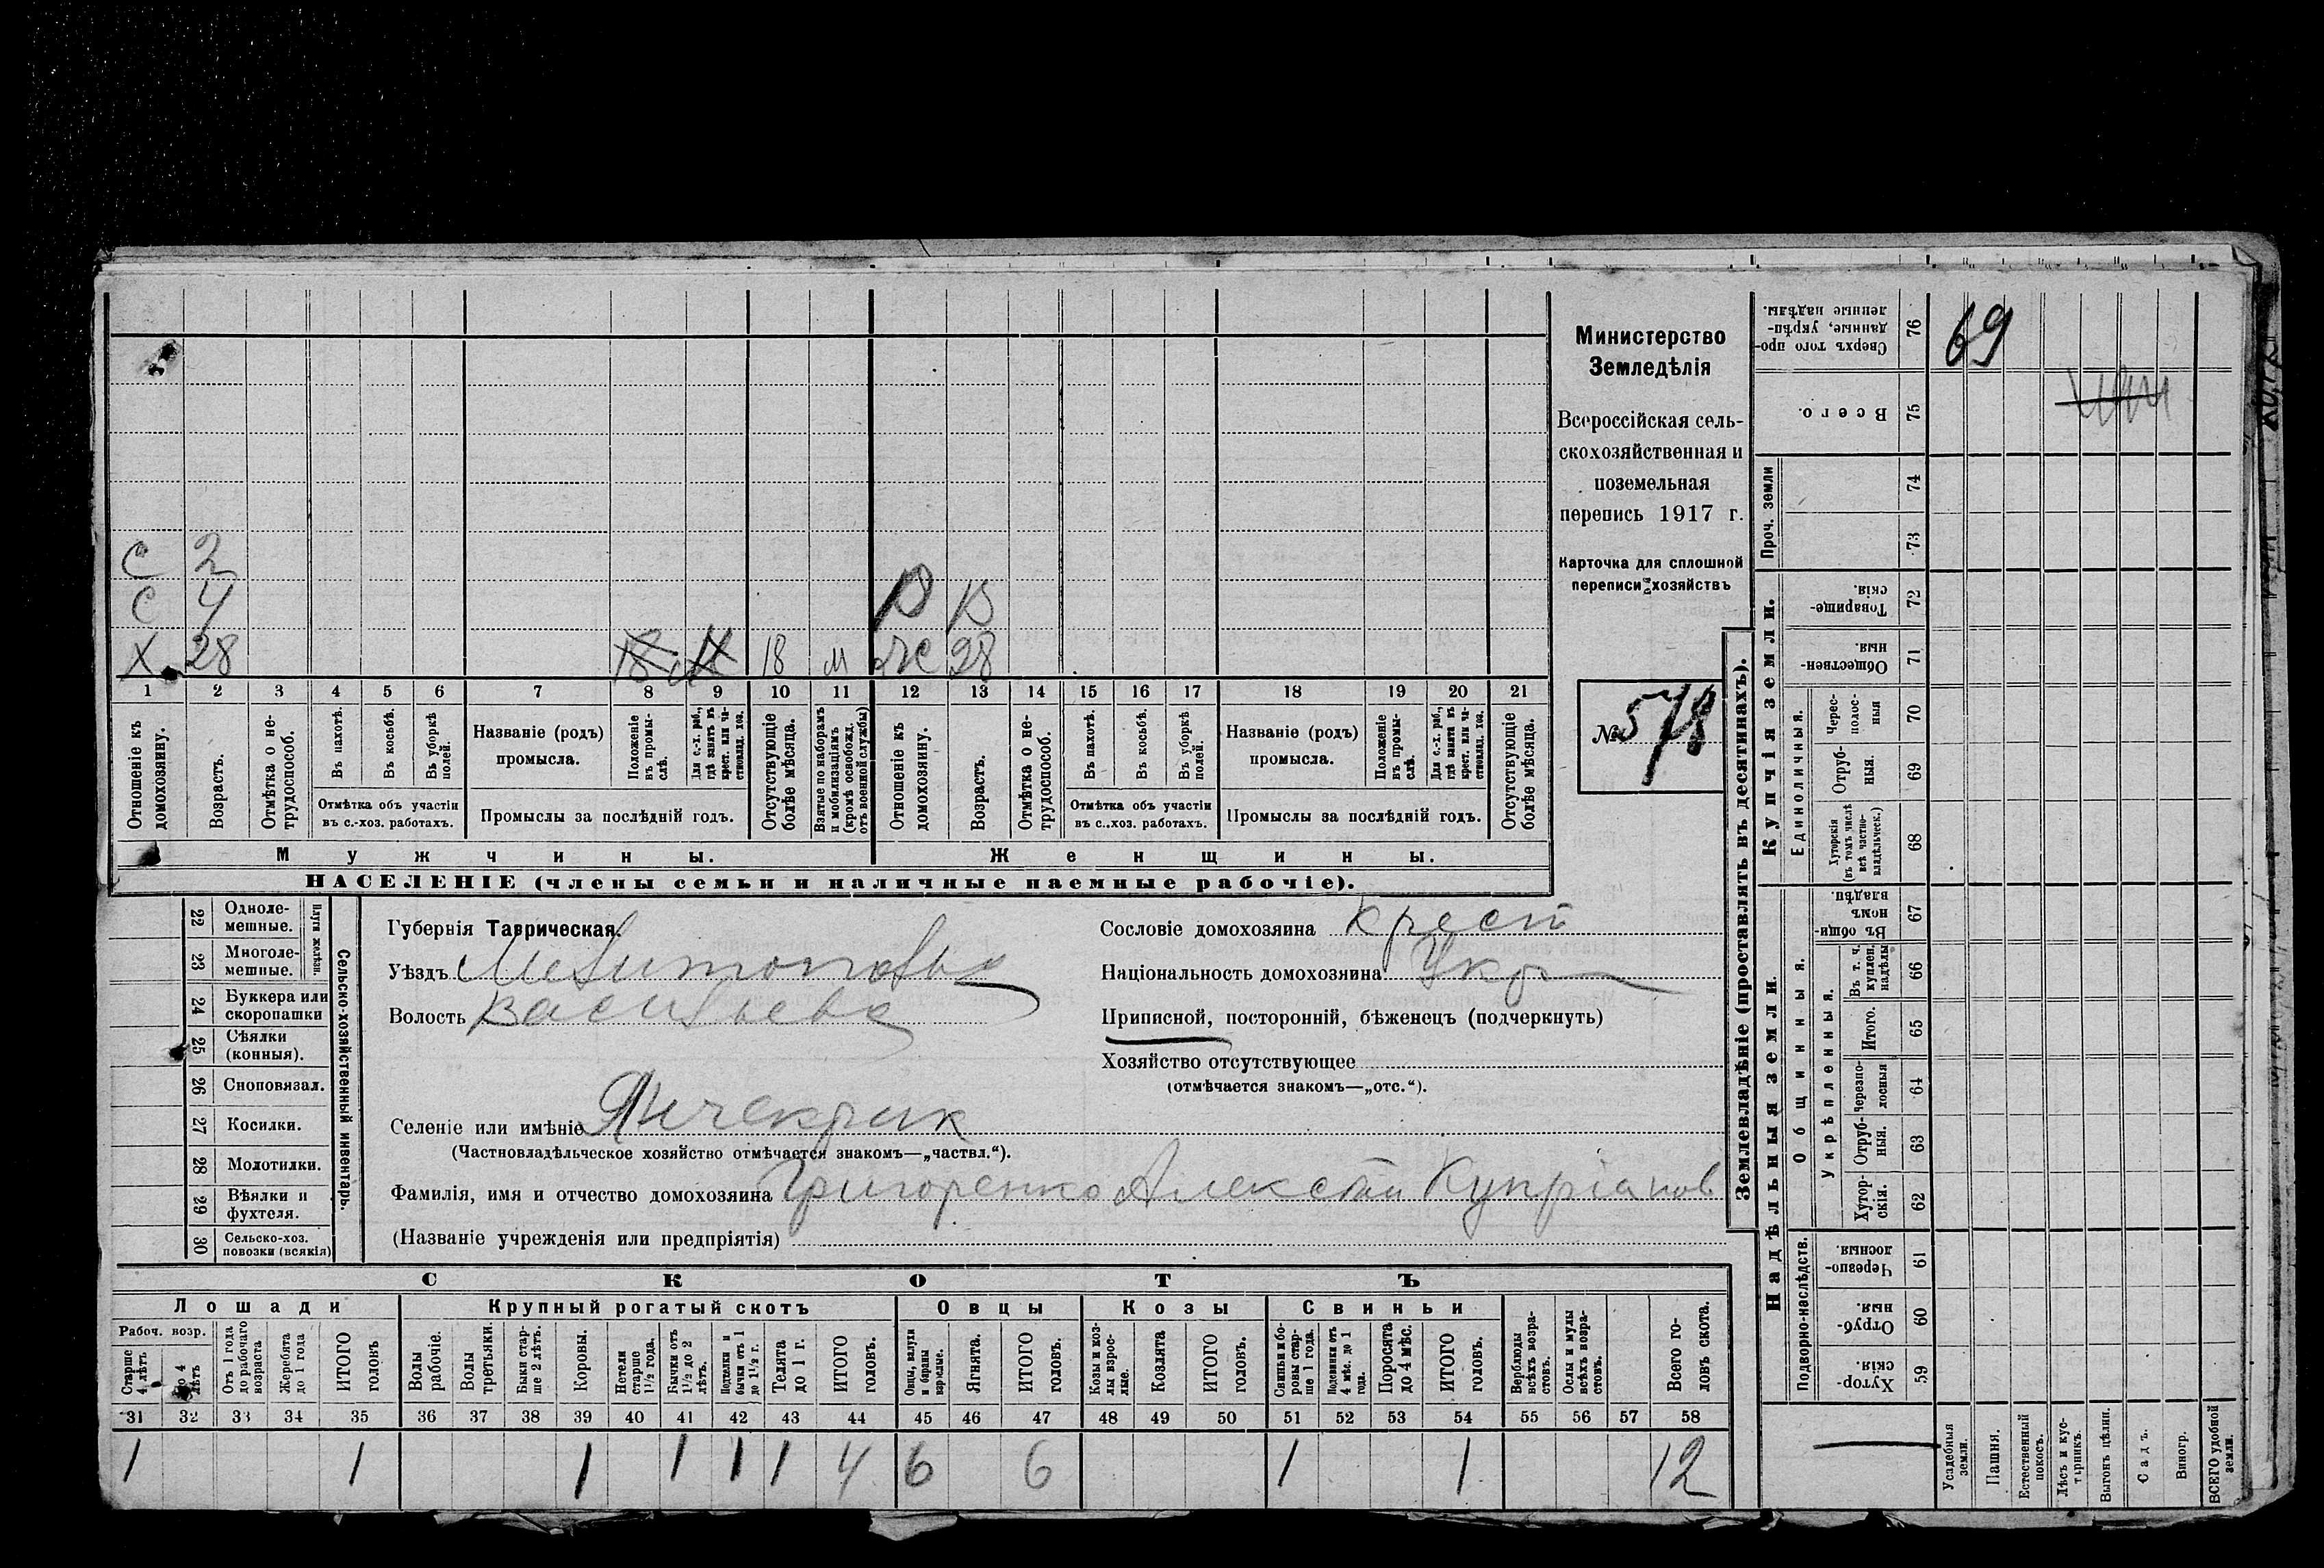 С 2
С 4
Х 28 18 м
Ж 28
1 2 3 4 5 6 7 8 9 10 11 12 13 14 15 16 17 18 19 20 21
Отношеніе къ домохозяину.
Возрастъ.
Отмѣтка о не-трудоспособ.
Въ пахотѣ.
Въ косьбѣ.
Въ уборкѣ полей.
Отмѣтка объ участіи
въ с.-хоз. работахъ.
Названіе (родъ)
промысла.
Положеніе въ промы-слѣ.
Для с.-х. раб., гдѣ занятъ въ крест. или ча-стновлад. хоз.
Промыслы за послѣдній годъ.
Отсутствующіе болѣе мѣсяца.
Взятые по наборамъ и мобилизаціямъ (кромѣ освобожд. отъ военной службы)
Отношеніе къ домохозяину.
Возрастъ.
Отмѣтка о не-трудоспособ.
Въ пахотѣ.
Въ косьбѣ.
Въ уборкѣ полей.
Отмѣтка объ участіи
въ с.-хоз. работахъ.
Названіе (родъ)
промысла.
Положеніе въ промы-слѣ.
Для с.-х. раб., гдѣ занята въ крест. или ча-стновлад. хоз.
Промыслы за послѣдній годъ.
Отсутствующіе болѣе мѣсяца.
Мужчины.
Женщины.
НАСЕЛЕНІЕ (члены семьи и наличные наемные рабочіе).
Министерство
Земледѣлія
Всероссійская сель-
скохозяйственная и
поземельная
перепись 1917 г.
Карточка для сплошной
переписи хозяйствъ
№ 578
Сельско-хозяйственный инвентарь.
Плуги желѣзн.
22 Одноле-мешные.
23 Многоле-мешные.
24 Буккера или скоропашки
25 Сѣялки (конныя).
26 Сноповязал.
27 Косилки.
28 Молотилки.
29 Вѣялки и фухтеля.
30 Сельско-хоз. повозки (всякія)
Губернія Таврическая.
Уѣздъ Мелитопольск
Волость Васильевс
Селеніе или имѣніе Янчекрик
(Частновладѣльческое хозяйство отмѣчается знакомъ—„частвл.“).
Фамилія, имя и отчество домохозяина Григоренко Алексѣй Купріанов
(Названіе учрежденія или предпріятія)
Сословіе домохозяина крест
Національность домохозяина Укр
Приписной, посторонній, бѣженецъ (подчеркнуть)
Хозяйство отсутствующее
(отмѣчается знакомъ—„отс.“).
СКОТЪ
Лошади Крупный рогатый скотъ Овцы Козы Свиньи
Рабоч. возр.
Старше 4 лѣтъ
До 4 лѣтъ
Отъ 1 года до рабочаго возраста
Жеребята до 1 года
ИТОГО головъ
Волы рабочіе.
Волы третьяки.
Быки стар-ше 2 лѣтъ.
Коровы.
Нетели старше 1½ года.
Бычки отъ 1½ до 2 лѣтъ.
Подтелки и бычки отъ 1 до 1½ г.
Телята до 1 г.
ИТОГО головъ.
Овцы, валухи и бараны взрослые.
Ягнята.
ИТОГО головъ.
Козы и коз-лы взрос-лые.
Козлята
ИТОГО головъ.
Свиньи и бо-ровы стар-ше 1 года.
Подсвинки отъ 4 мѣс. до 1 года.
Поросята до 4 мѣс.
ИТОГО головъ.
Верблюды всѣхъ возра-стовъ.
Ослы и мулы всѣхъ возра-стовъ.
Всего го-ловъ скота.
31 32 33 34 35 36 37 38 39 40 41 42 43 44 45 46 47 48 49 50 51 52 53 54 55 56 57 58
1 1 1 1 1 1 4 6 6 1 1 12
Землевладѣніе (проставлять въ десятинахъ).
Купчія земли.
Надѣльныя земли.
Сверхъ того про-данные, укрѣп-ленные надѣлы. 76 69
Всего. 75
Проч. земли 74
73
Товарище-скія. 72
Обществен-ныя. 71
Единоличныя.
Черес-полос-ныя 70
Отруб-ныя. 69
Хуторскія (въ томъ числѣ всѣ частно-владѣльческ.) 68
Общинныя.
Въ общин-номъ владѣн. 67
Укрѣпленныя.
Въ т. ч. куплен. надѣлы 66
Итого. 65
Черезпо-лосныя 64
Отруб-ныя. 63
Хутор-скія. 62
Подворно-наслѣдств.
Черезпо-лосныя. 61
Отруб-ныя. 60
Хутор-скія. 59
Усадебныя земли.
Пашня.
Естественный покосъ.
Лѣсъ и кус-тарникъ.
Выгонъ цѣлин.
Садъ.
Виногр.
ВСЕГО удобной земли.